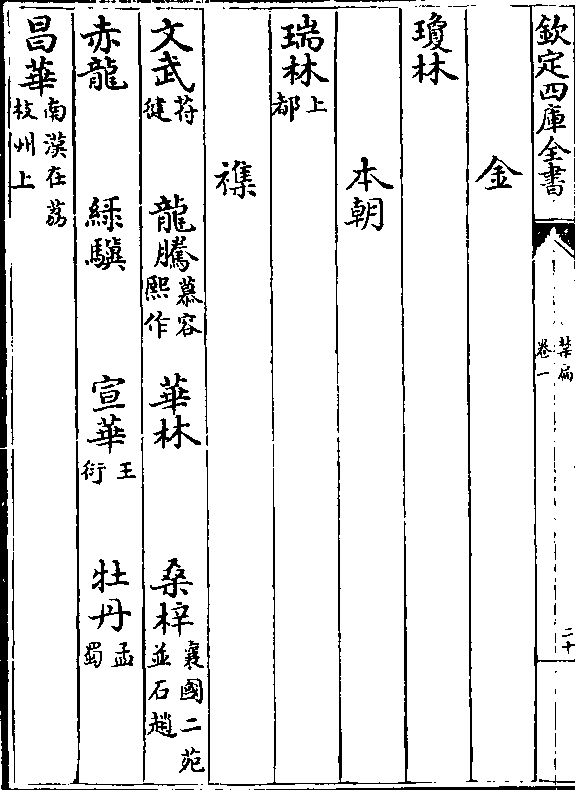 欽定四庫全書
禁扁
卷一
二十
金
瓊林
本朝
瑞林上都
襍
文武苻健 龍騰慕容熙作 華林 桑梓襄國二苑並石趙
赤龍 綠驥 宣華王衍 牡丹孟蜀
昌華南漢在荔枝州上